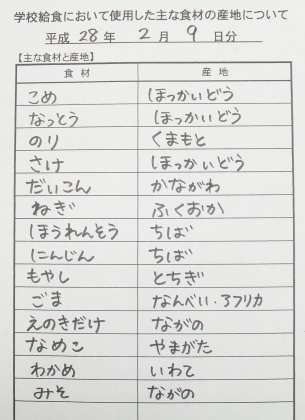 学校給食において使用した主な食材の産地について
平成 28 年 2 月 9 日分
【主な食材と産地】
食材 産地
こめ ほっかいどう
なっとう ほっかいどう
のり くまもと
さけ ほっかいどう
だいこん かながわ
ねぎ ふくおか
ほうれんそう ちば
にんじん ちば
もやし とちぎ
ごま なんべい・アフリカ
えのきだけ ながの
なめこ やまがた
わかめ いわて
みそ ながの